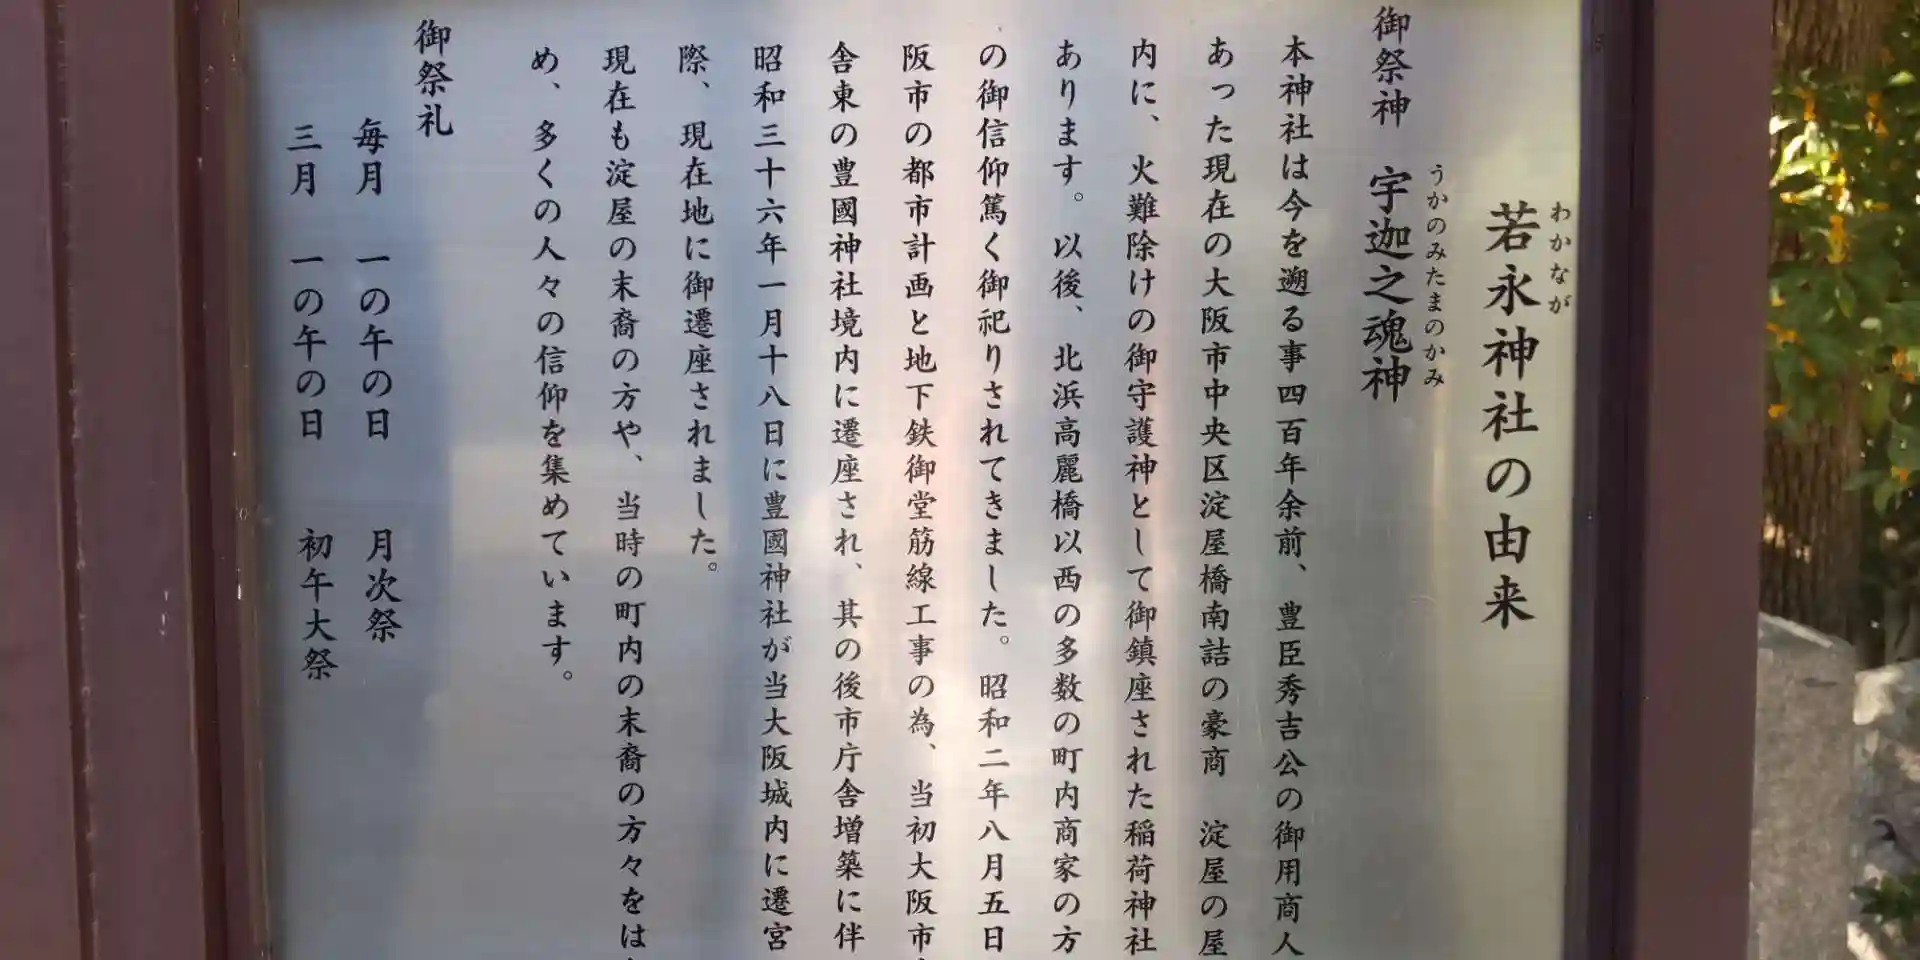 若永神社の由来
わかなが
御祭神 宇迦之魂神
うかのみたまのかみ
本神社は今を遡る事四百年余前、豊臣秀吉公の御用商人
あった現在の大阪市中央区淀屋橋南詰の豪商 淀屋の屋
内に、火難除けの御守護神として御鎮座された稲荷神社
あります。以後、北浜高麗橋以西の多数の町内商家の方
の御信仰篤く御祀りされてきました。昭和二年八月五日
阪市の都市計画と地下鉄御堂筋線工事の為、当初大阪市
舎東の豊國神社境内に遷座され、其の後市庁舎増築に伴
昭和三十六年一月十八日に豊國神社が当大阪城内に遷宮
際、現在地に御遷座されました。
現在も淀屋の末裔の方や、当時の町内の末裔の方々をは
め、多くの人々の信仰を集めています。
御祭礼
毎月 一の午の日 月次祭
三月 一の午の日 初午大祭